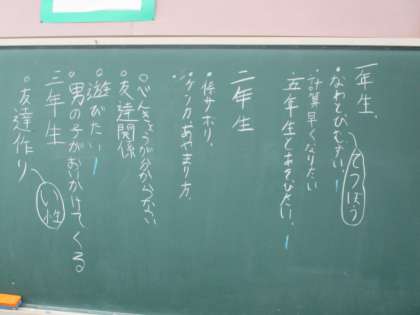 一年生、
てつぼう
・なわとびむずい!
・計算早くなりたい
五年生とあそびたい、
二年生
・係サボリ、
・ケンカあやまり方、
○べんきょうが分からない
○友達関係
○遊びたい!
○男の子がおいかけてくる
三年生
い性
○友達作り